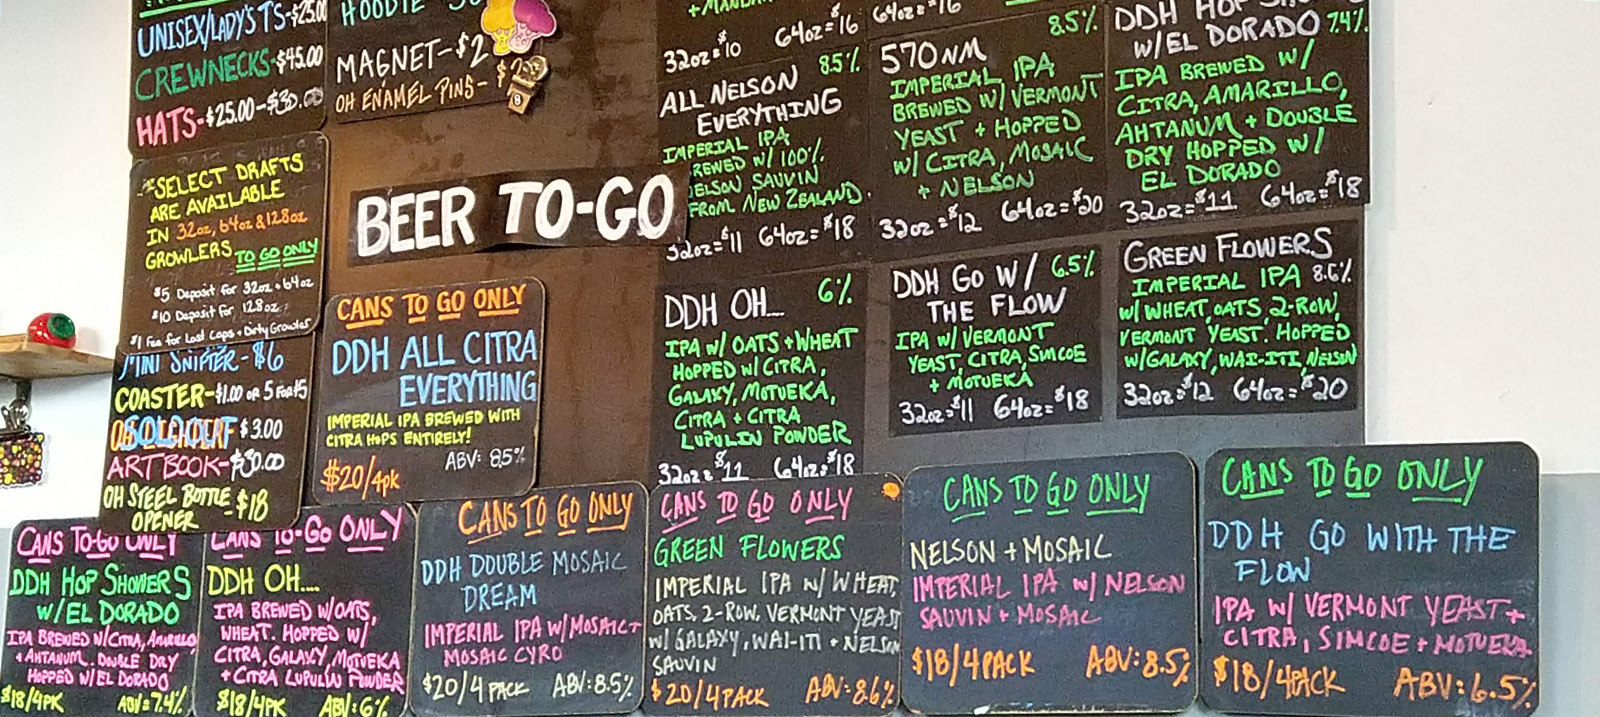 UNISEX/LADY'S TS-$25.00
CREWNECKS-$45.00
HATS-$25.00-$30.00
HOODIE
MAGNET-$2
OH ENAMEL PINS-
*SELECT DRAFTS
ARE AVAILABLE
IN 32oz, 64oz & 128oz
GROWLERS TO GO ONLY
$5 Deposit for 32oz + 64oz
$10 Deposit for 128oz
$1 Fee for Lost Caps + Dirty Growler
MINI SNIFTER - $6
COASTER-$1.00 OR 5 FOR $5
SOLD OUT $3.00
ART BOOK-$30.00
OH STEEL BOTTLE - $18
OPENER
BEER TO-GO
CANS TO GO ONLY
DDH ALL CITRA
EVERYTHING
IMPERIAL IPA BREWED WITH
CITRA HOPS ENTIRELY!
$20/4pk ABV: 8.5%
32oz=$10 64oz=$16
ALL NELSON 8.5%
EVERYTHING
IMPERIAL IPA
BREWED W/ 100%
NELSON SAUVIN
FROM NEW ZEALAND
32oz=$11 64oz=$18
64oz=$16
570NM 8.5%
IMPERIAL IPA
BREWED W/ VERMONT
YEAST + HOPPED
W/ CITRA, MOSAIC
+ NELSON
32oz=$12 64oz=$20
DDH HOP
W/EL DORADO 7.4%
IPA BREWED W/
CITRA, AMARILLO,
AHTANUM + DOUBLE
DRY HOPPED W/
EL DORADO
32oz=$11 64oz=$18
DDH OH... 6%
IPA W/ OATS + WHEAT
HOPPED W/ CITRA,
GALAXY, MOTUEKA,
CITRA + CITRA
LUPULIN POWDER
32oz=$11 64oz=$18
DDH GO W/ 6.5%
THE FLOW
IPA W/ VERMONT
YEAST, CITRA, SIMCOE
+ MOTUEKA
32oz=$11 64oz=$18
GREEN FLOWERS
IMPERIAL IPA 8.6%
W/ WHEAT, OATS, 2-ROW,
VERMONT YEAST. HOPPED
W/GALAXY, WAI-ITI, NELSON
32oz=$12 64oz=$20
CANS TO-GO ONLY
DDH HOP SHOWERS
W/EL DORADO
IPA BREWED W/CITRA, AMARILLO
+ AHTANUM. DOUBLE DRY
HOPPED W/ EL DORADO
$18/4PK ABV=7.4%
CANS TO-GO ONLY
DDH OH....
IPA BREWED W/OATS,
WHEAT. HOPPED W/
CITRA, GALAXY, MOTUEKA
+ CITRA LUPULIN POWDER
$18/4PK ABV: 6%
CANS TO GO ONLY
DDH DOUBLE MOSAIC
DREAM
IMPERIAL IPA W/MOSAIC +
MOSAIC CYRO
$20/4 PACK ABV=8.5%
CANS TO GO ONLY
GREEN FLOWERS
IMPERIAL IPA W/ WHEAT,
OATS, 2-ROW, VERMONT YEAST
W/ GALAXY, WAI-ITI + NELSON
SAUVIN
$20/4PACK ABV: 8.6%
CANS TO GO ONLY
NELSON + MOSAIC
IMPERIAL IPA W/ NELSON
SAUVIN + MOSAIC
$18/4PACK ABV: 8.5%
CANS TO GO ONLY
DDH GO WITH THE
FLOW
IPA W/ VERMONT YEAST +
CITRA, SIMCOE + MOTUEKA.
$18/4PACK ABV: 6.5%